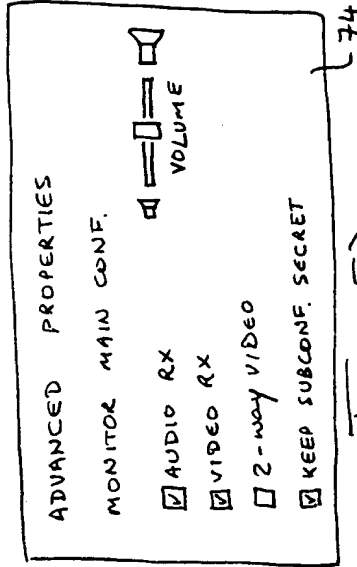 ADVANCED PROPERTIES
MONITOR MAIN CONF.
AUDIO RX
VOLUME
VIDEO RX
2-way VIDEO
KEEP SUBCONF. SECRET
74